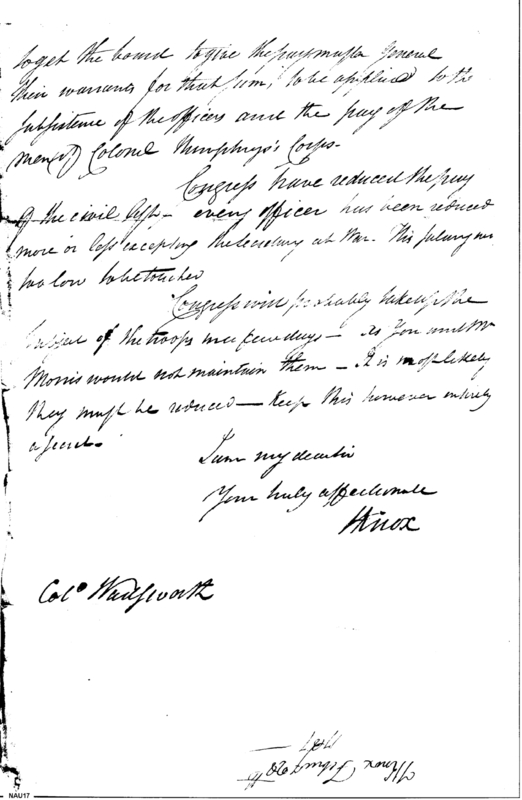 to get the board to give the paymaster General
their warrants for that sum, to be applied to the
subsistence of the officers and the pay of the
men of Colonel Humphrys's Corps-
Congress have reduced the pay
of the civil list - every officer has been reduced
more or less excepting the Secretary at War. This salary was
too low to be touched
Congress will probably take up the
subject of the troops in a few days - as You and Mr
Morris would not maintain them - It is most likely
they must be reduced - Keep this however entirely
a secret.
I am my dear sir
Your truly affectionate
HKnox
Colo Wadsworth
HKnox Feby 20th
1787
NAU17